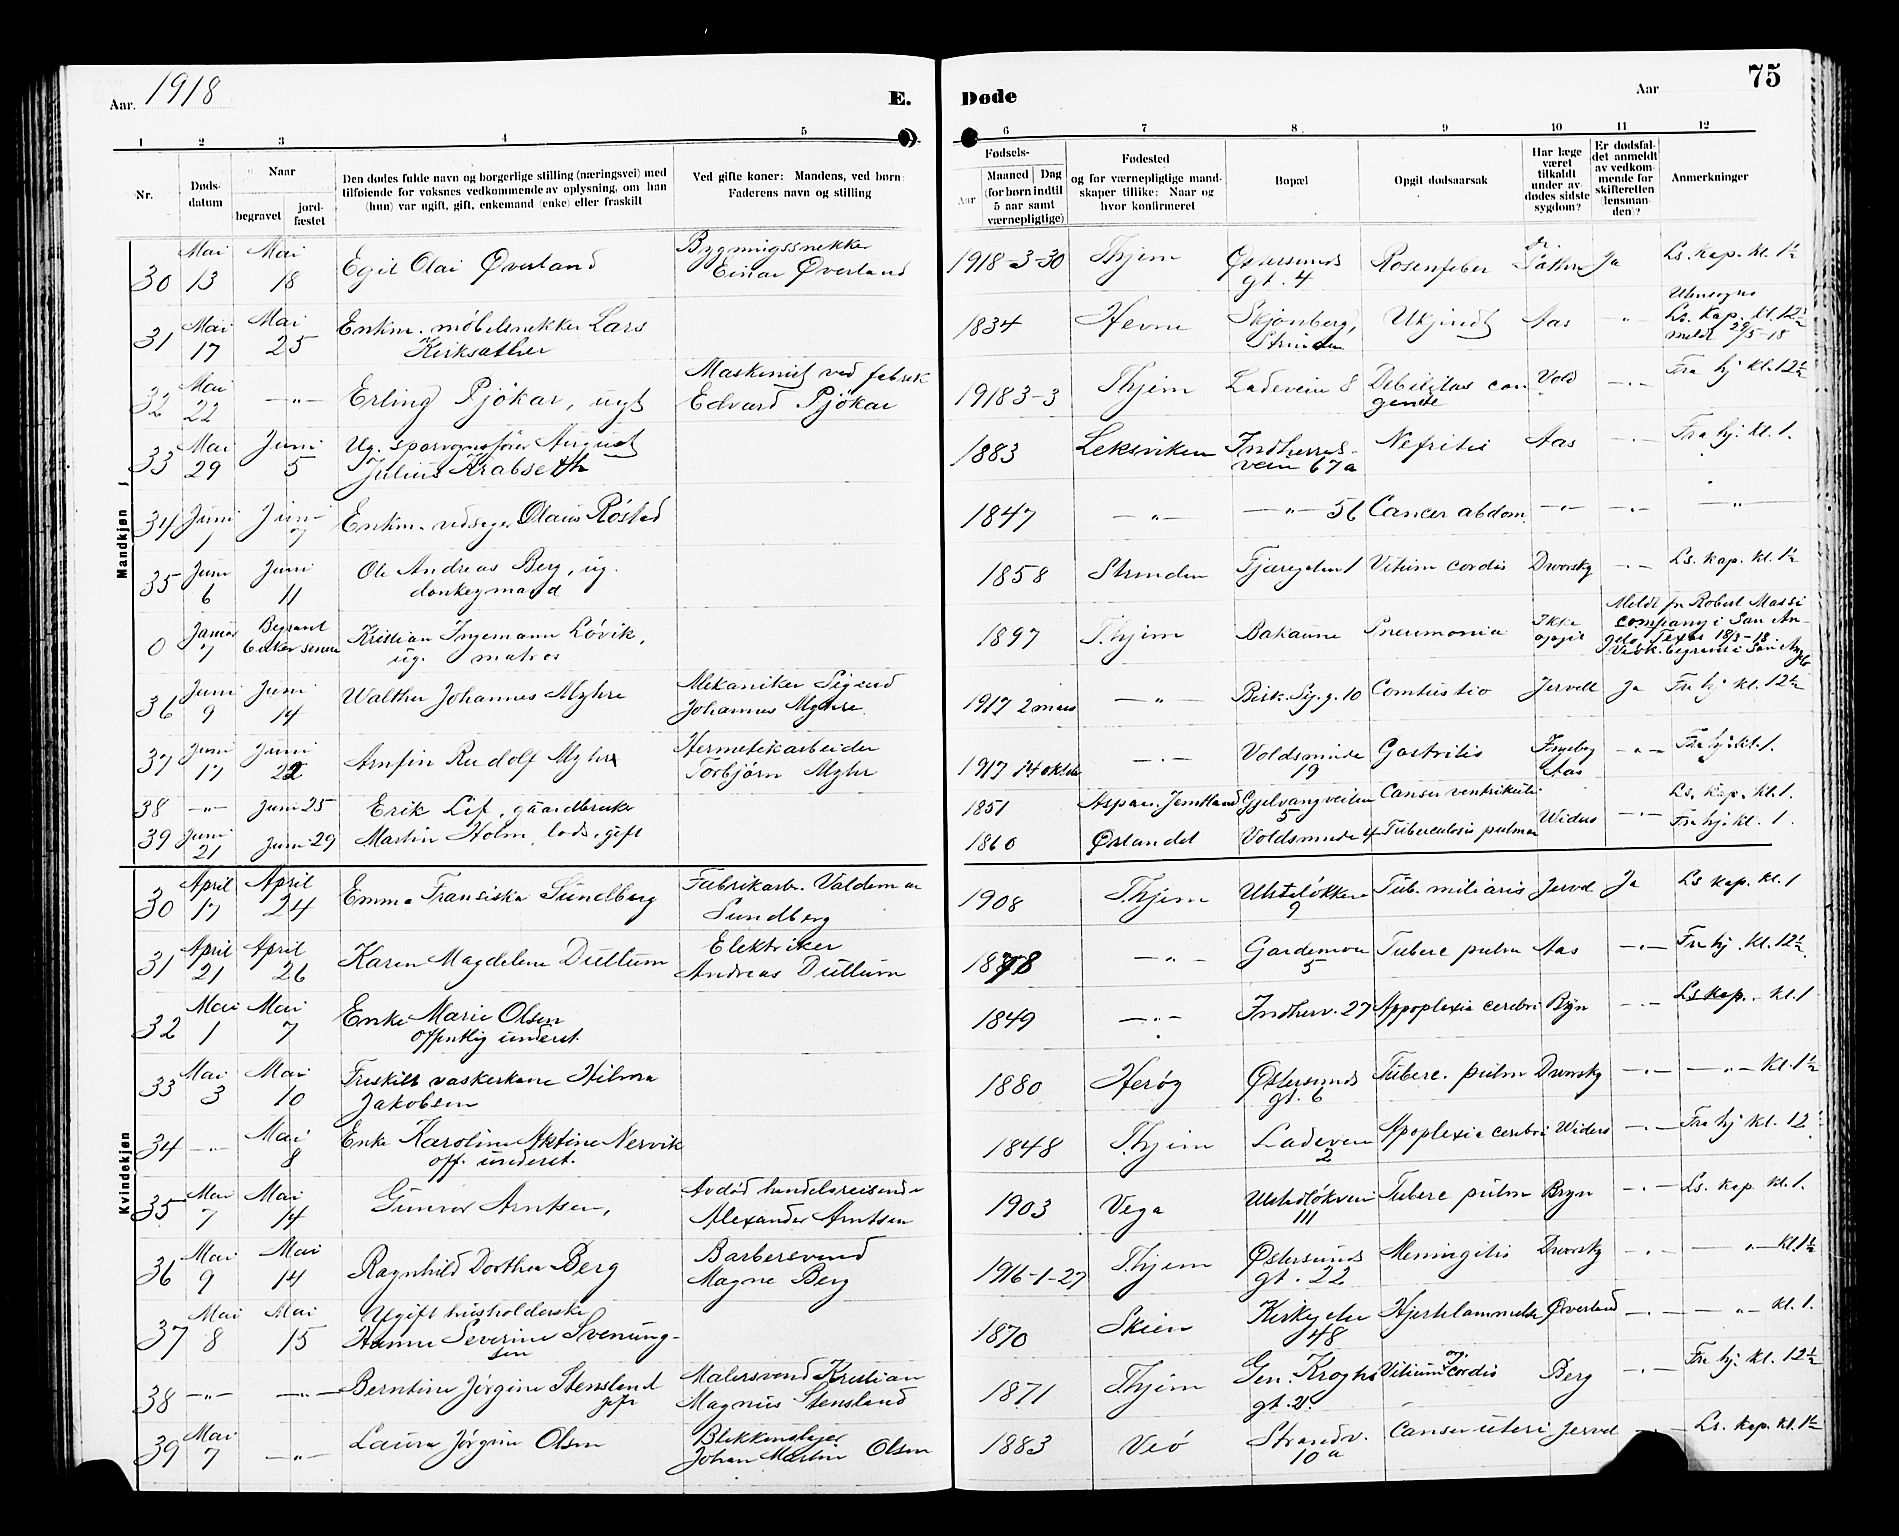 Aar. 1918
E.
Døde
Aar
75
1 2 3 4 5 6 7 8 9 10 11 12
Nr.
Døds-
datum
Naar
begravet
jord-
fæstet
Den dødes fulde navn og borgerlige stilling (næringsvei) med
tilføiende for voksnes vedkommende av oplysning, om han
(hun) var ugift, gift, enkemand (enke) eller fraskilt
Ved gifte koner: Mandens, ved børn:
Faderens navn og stilling
Fødsels-
Aar
Maaned Dag
(for børn indtil
5 aar samt
værnepligtige)
Fødested
og for værnepligtige mand-
skaper tillike: Naar og
hvor konfirmeret
Bopæl
Opgit dødsaarsak
Har læge
været
tilkaldt
under av-
dødes sidste
sygdom?
Er dødsfal-
det anmeldt
av vedkom-
mende for
skifteretten
(lensman-
den)?
Anmerkninger
Mandkjøn
30 Mai 13 Mai 18 Egil Olai Øverland Bygningssnekker Einar Øverland 1918-3-30 Thjem Østersunds gt. 4 Rosenfeber Ja Ls. kap. kl. 1½
31 Mai 17 Mai 25 Enkm. møbelsnekker Lars Kirksæther 1834 Hevne Skjønberg, Strinden Ukjendt Aas -"- Utensogns Ls. kap. kl. 12½ meldt 29/5-18
32 Mai 22 -"- Erling Pjökar, ugt Maskinist ved fabrik Edvard Pjökar 1918 3-3 Thjem Ladeveien 8 Debilitas congenite Vold -"- Fra hj kl. 12½
33 Mai 29 Juni 5 Ug. sporvognsfører August Julius Krabseth 1883 Leksviken Indherredsveien 67a Nefritis Aas -"- Fra hj. kl. 1.
34 Juni 1 Juni 7 Enkm. vedsager Olaus Röstad 1847 -"- -"- 56 Cancer abdom. -"- -"- -"-
35 Juni 6 Juni 11 Ole Andreas Berg, ug. donkeymand 1858 Strinden Tjæregaten 1 Vitium cordis Dworsky -"- Ls. kap. kl. 1½
0 Januar 7 Begravet Kristian Ingemann Lövik, ug. matros 1897 T.hjem Bakaune Pneumonia Ikke opgit Meldt fr Robert Massi company i San Angelo, Texas 18/3-18. Vedk. begravet i San Angelo
36 Juni 9 Juni 14 Walther Johannes Myhre Mekaniker Sigurd Johannes Myhre. 1917 2 mars -"- Bisk. Sig. g. 10 Combustio Jervell Ja Fra hj kl. 12½
37 Juni 17 Juni 22 Arnfin Rudolf Myhr Hermetikarbeider Torbjörn Myhr 1917 14 oktob -"- Voldsminde 19 Gastritis Ingeborg Aas -"- Fra hj. kl. 1.
38 -"- Juni 25 Erik Lif, gaardbruker 1851 Aspaas. Jemtland Gjelvangveien 5 Canser ventrikuli Ls. kap. kl. 1.
39 Juni 21 Juni 29 Martin Holm, lods, gift 1860 Ørlandet Voldsminde 4 Tuberculosis pulmon Widerö -"- Fra hj. kl. 1.
Kvindekjøn
30 April 17 April 24 Emma Fransiska Sundberg Fabrikarb. Valdemar Sundberg 1908 T.hjem Ulstadløkken 9 Tub. miliaris Jervel Ja Ls kap. kl. 1
31 April 21 April 26 Karen Magdelene Dullum Elektriker Andreas Dullum 1878 -"- Gardemoen 5 Tuberc pulm Aas -"- Fra hj. kl. 12½
32 Mai 1 Mai 7 Enke Marie Olsen offentlig underst. 1849 -"- Indherv. 27 Appoplexia cerebri Bryn -"- Ls kap. kl. 1
33 Mai 3 Mai 10 Freskilt vaskerkone Hilma Jakobsen 1880 Herøy Østersunds gt. 6 Tuberc. pulm Dworsky -"- -"- kl. 1½
34 -"- Mai 8 Enke Karoline Aktine Nervik off. underst. 1848 T.hjem Ladeveien 2 Apoplexia cerebri Widerö -"- Fra hj kl. 12½
35 Mai 7 Mai 14 Gunvor Arntsen, Avdød handelsreisende Alexander Arntsen 1903 Vega Ulstadløkveien 111 Tuberc pulm Bryn -"- Ls. kap. kl. 1.
36 Mai 9 Mai 14 Ragnhild Dorthea Berg Barbersvend Magne Berg 1916-1-27 Thjem Østersunds gt. 22 Meningitis Dworsky -"- -"- kl. 1½
37 Mai 8 Mai 15 Ugift husholderske Hanna Severine Svenungsen 1870 Skien Kirkegaten 48 Hjertelammelse Øverland -"- -"- kl. 1.
38 -"- -"- Berntine Jörgine Stensland gift Malersvend Kristian Magnus Stensland 1871 Thjem Gen. Kroghs gt. 21. Vitium org. cordis Berg -"- Fra hj. kl. 12½
39 Mai 7 -"- Laura Jörgine Olsen Blikkenslager Johan Martin Olsen 1883 Veö Strandv. 10a Canser uteri Jervel -"- Ls. kap. kl. 1½